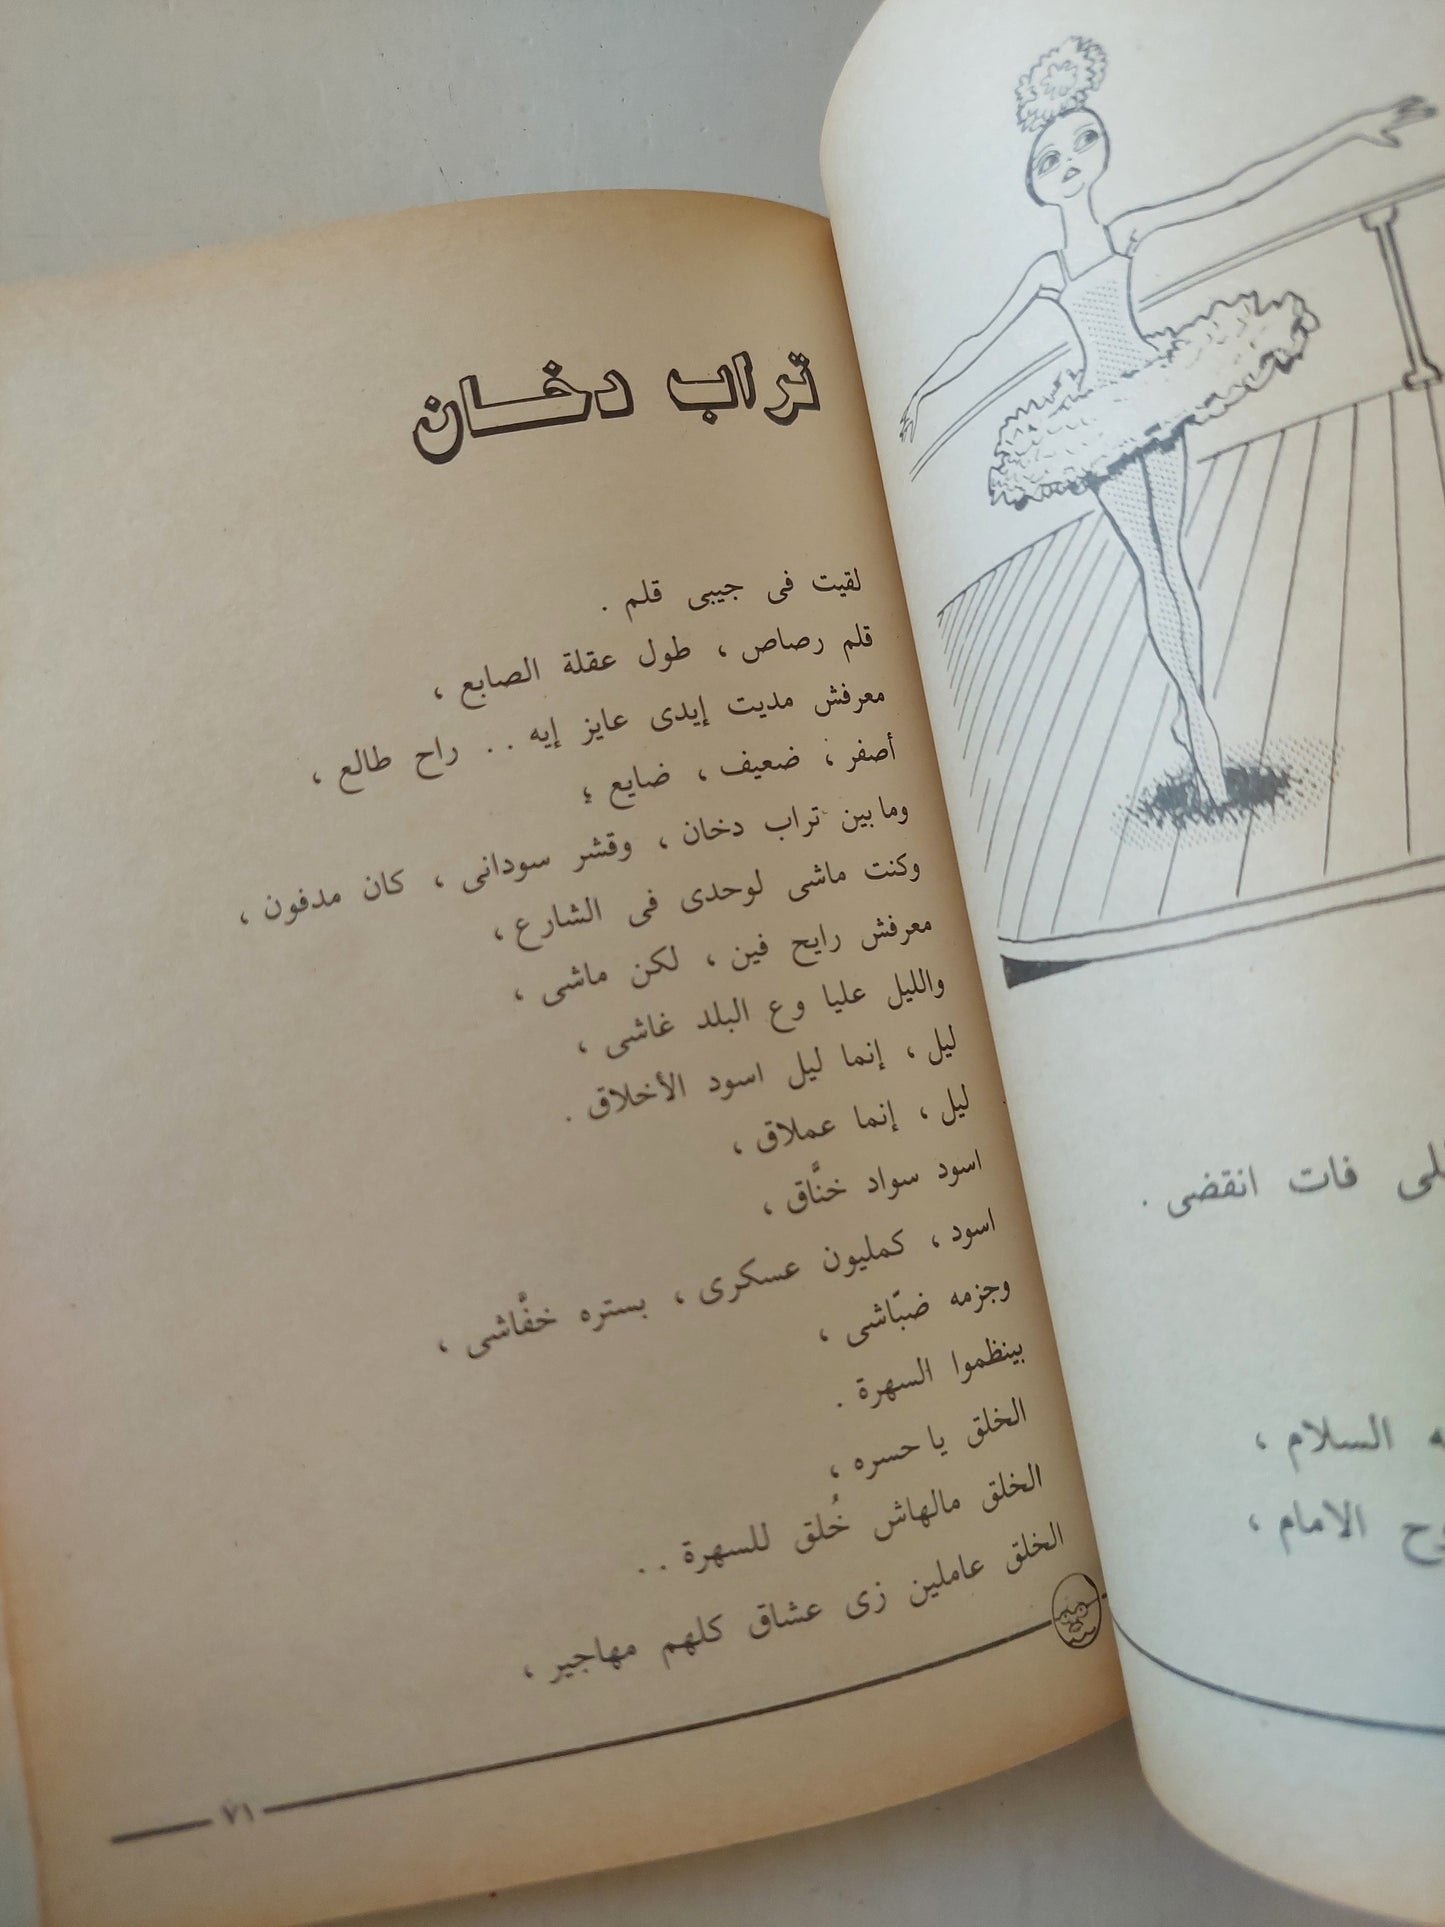 تراب دخان
لقيت فى جيبى قلم .
قلم رصاص ، طول عقلة الصابع ،
معرفش مديت إيدى عايز إيه .. راح طالع ،
أصفر ، ضعيف ، ضايع ،
وما بين تراب دخان ، وقشر سودانى ، كان مدفون ،
وكنت ماشى لوحدى فى الشارع ،
معرفش رايح فين ، لكن ماشى ،
والليل عليا وع البلد غاشى ،
ليل ، إنما ليل اسود الأخلاق .
ليل ، إنما عملاق ،
اسود سواد خنَّاق ،
اسود ، كمليون عسكرى ، بستره خفَّاشى ،
وجزمه ضبّاشى ،
بينظموا السهرة .
الخلق يا حسره ،
الخلق مالهاش خُلق للسهرة ..
الخلق عاملين زى عشاق كلهم مهاجير ،
٧١
فات انقضى .
السلام ،
الامام ،